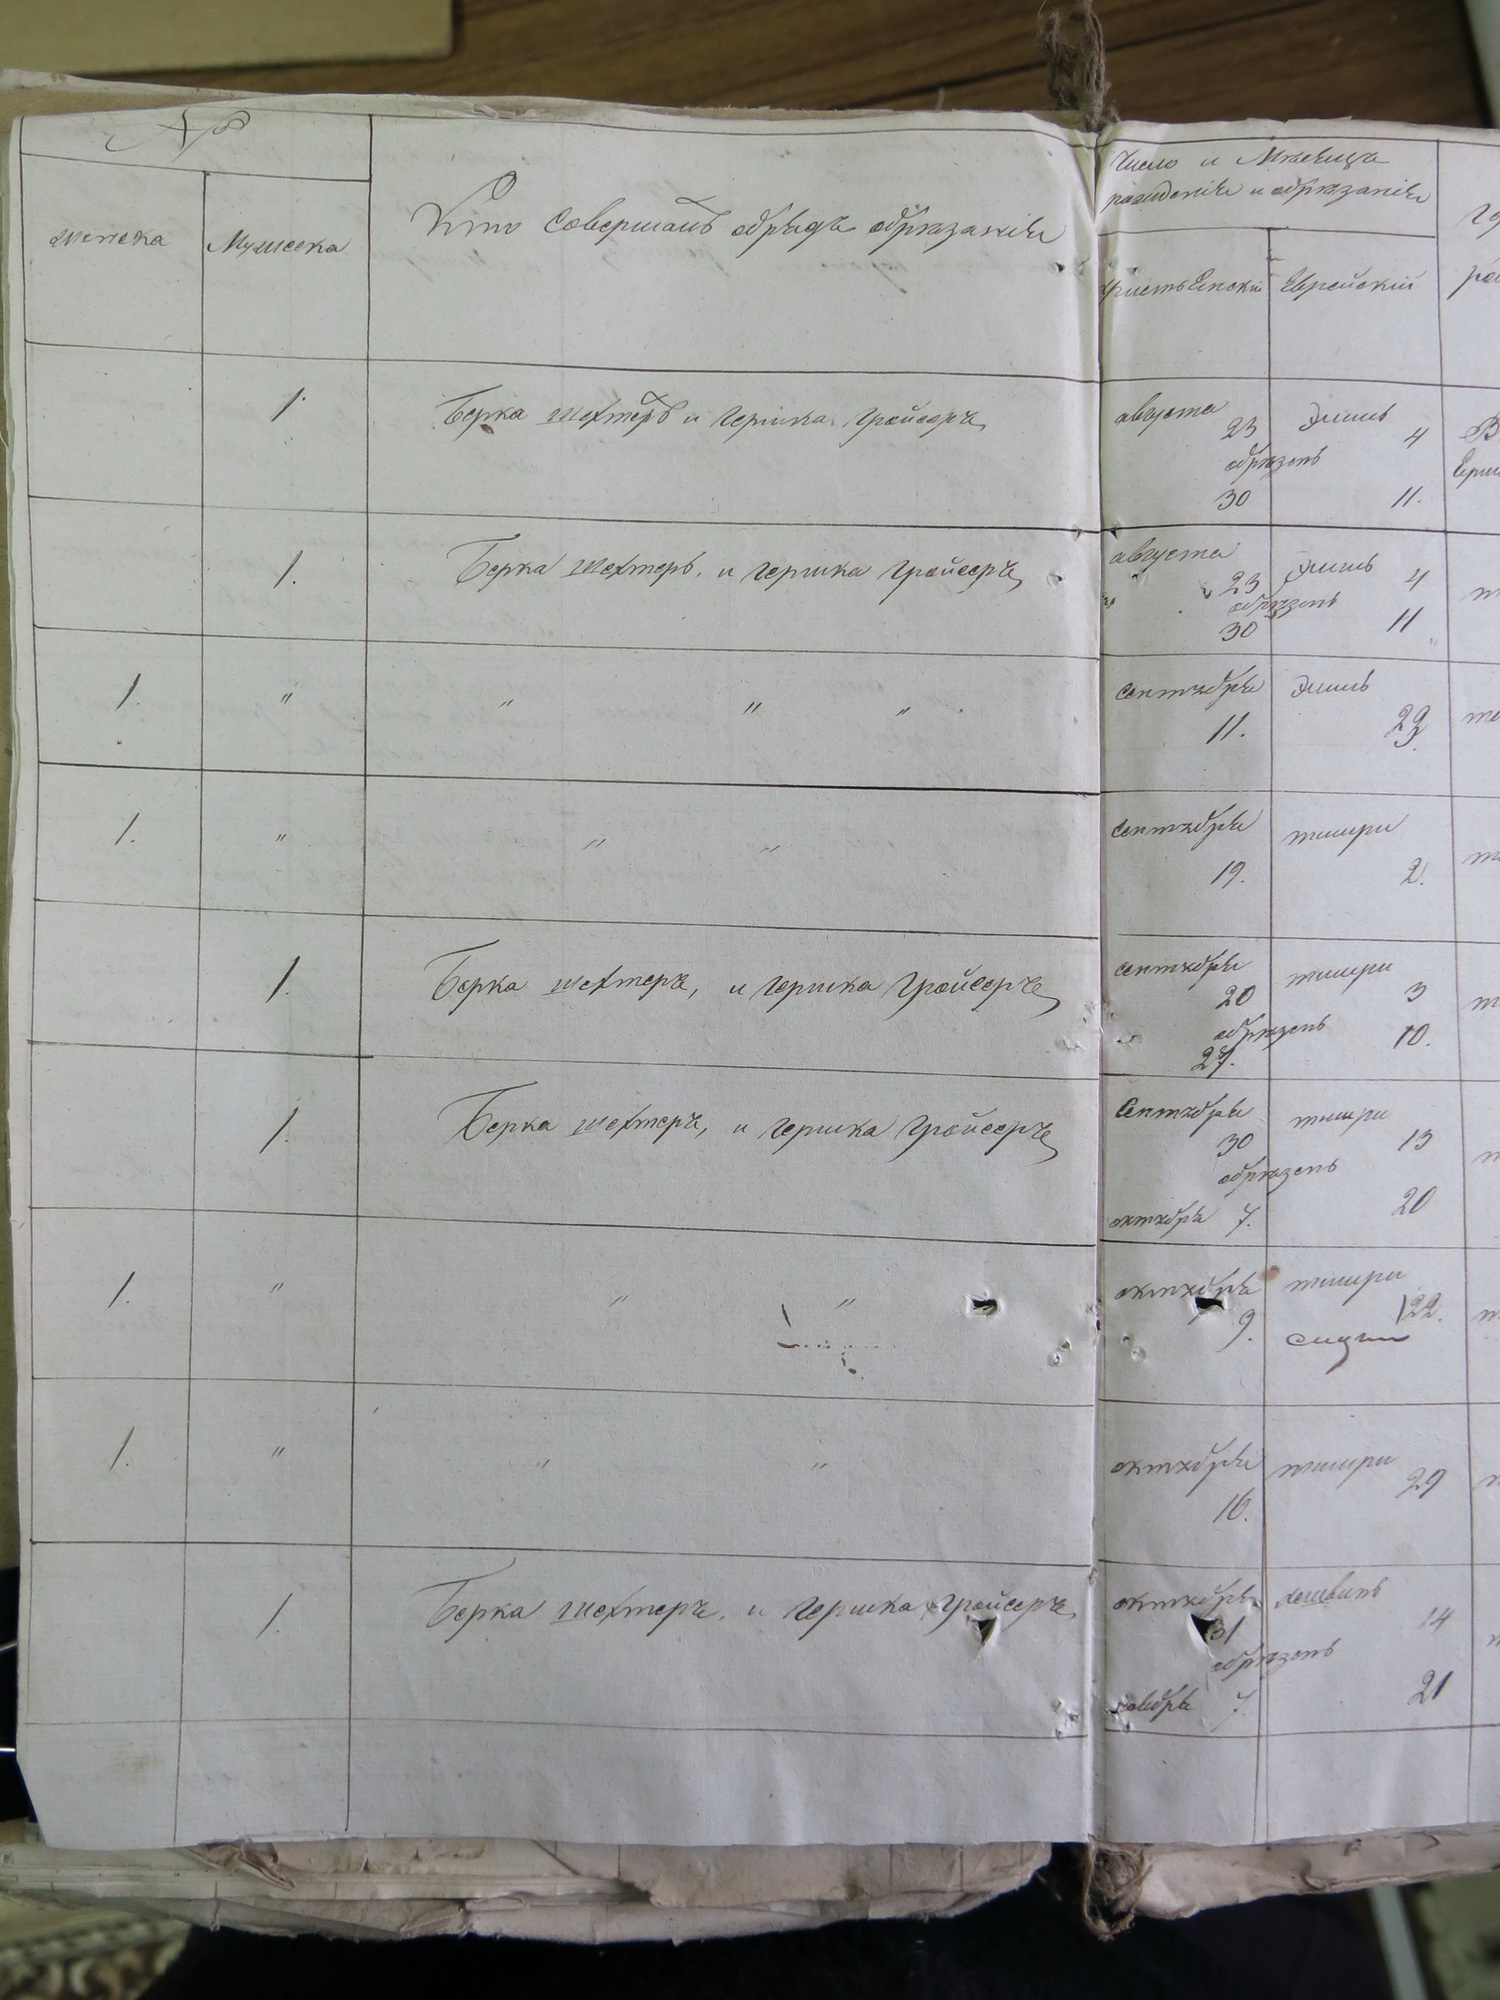 №
женска
Мужеска
Кто совершалъ обрядъ обрѣзанія
Число и Мѣсяцъ
рожденія и обрѣзанія
Христьянскій
Еврейскій
1.
Берка шехтеръ и Гершка Гройсеръ
августа
23
Элюль
4
обрѣзенъ
30
11.
1.
Берка шехтеръ, и Гершка Гройсеръ
августа
23
Элюль
4
обрѣзенъ
30
11
1. " " " "
сентября
11.
Элюль
29.
1. " " "
сентября
19.
тишри
2.
1.
Берка шехтеръ, и Гершка Гройсеръ
сентября
20
тишри
3
обрѣзенъ
27.
10.
1.
Берка шехтеръ, и Гершка Гройсеръ
Сентября
30
тишри
13
обрѣзенъ
октября 7.
20
1. " " "
октября
9.
тишри
22.
1. " " "
октября
16.
тишри
29
1.
Берка шехтеръ, и Гершка Гройсеръ
октября
31
хешвинъ
14
обрѣзенъ
ноября 7.
21